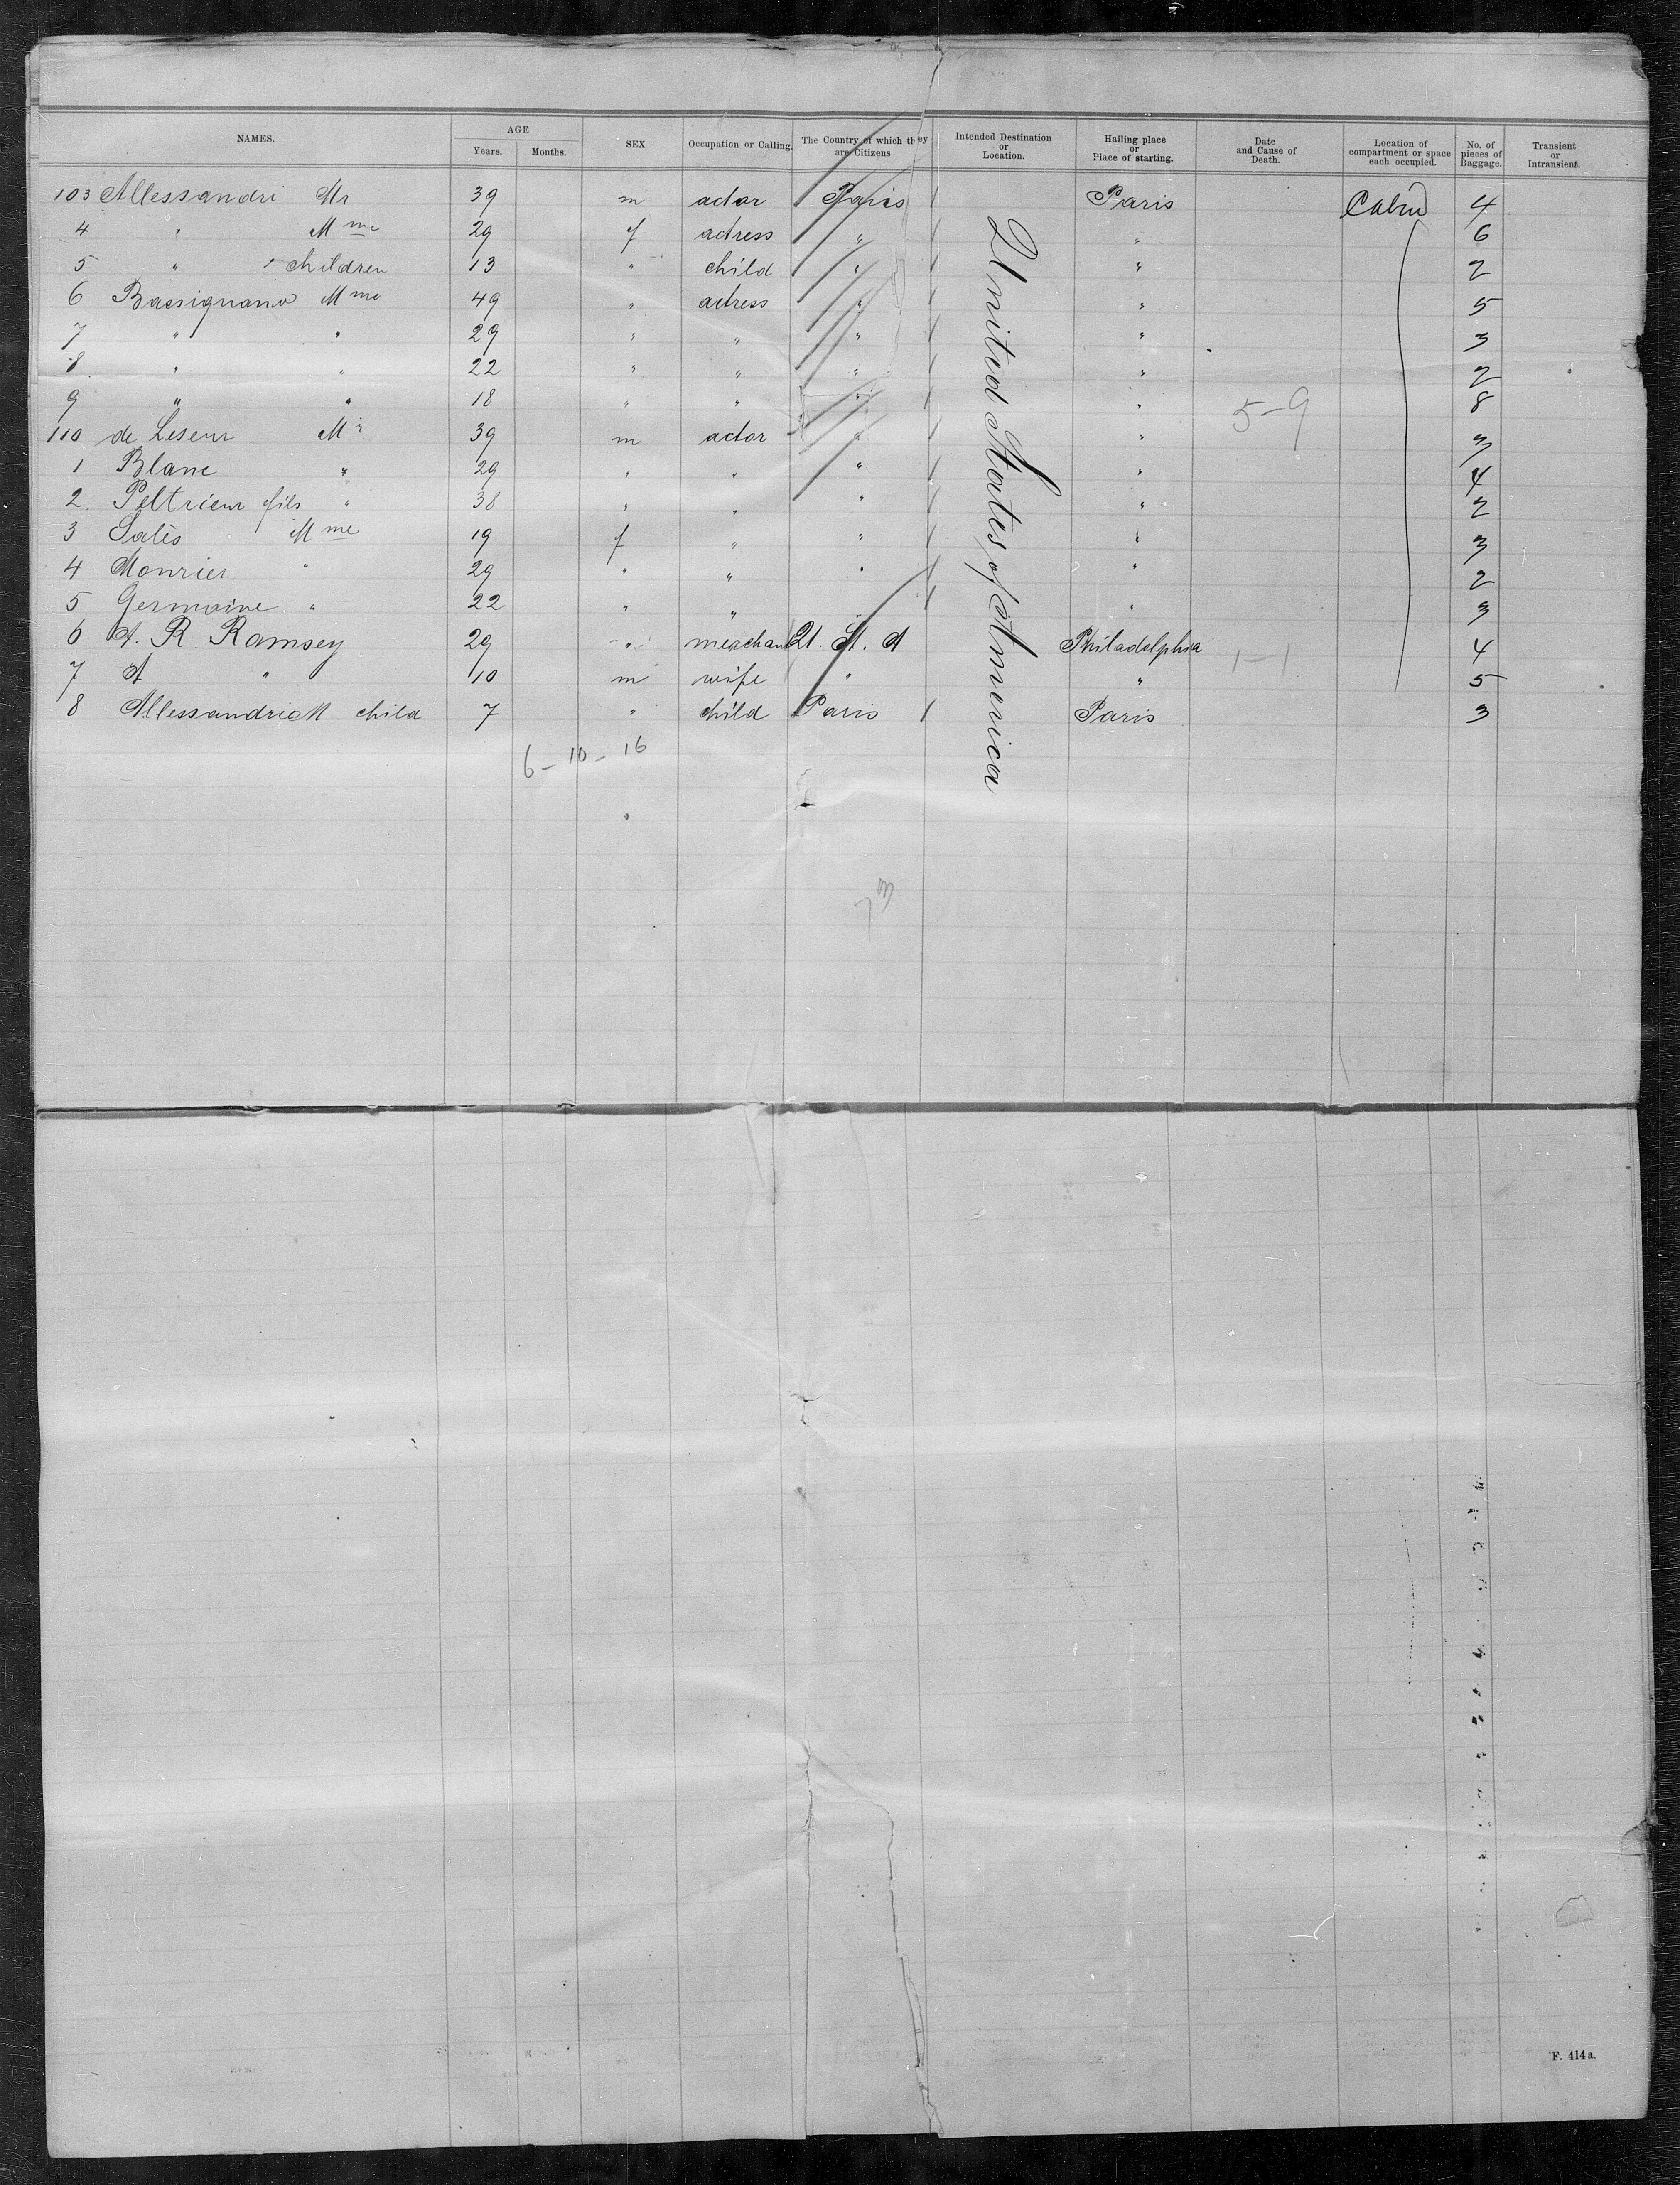 NAMES. AGE Years. Months. SEX Occupation or Calling. The Country of which they are Citizens Intended Destination or Location. Hailing place or Place of starting. Date and Cause of Death. Location of compartment or space each occupied. No. of pieces of Baggage. Transient or Intransient.
103 Allessandri Mr 39 m actor Paris Paris Cabin 4
4 " Mme 29 f actress " " 6
5 " " children 13 " child " " 2
6 Bassignano Mme 49 " actress " " 5
7 " " 29 " " " " 3
8 " " 22 " " " " 2
9 " " 18 " " " " 8
110 de Leseur Mr 39 m actor " " 3
1 Blanc " 29 " " " " 4
2 Peltrieur fils " 38 " " " " 2
3 Salès Mme 19 f " " " 3
4 Monrier " 29 " " " " 2
5 Germaine " 22 " " " " 3
6 A. R. Ramsey 29 " merchant U. St. A Philadelphia 4
7 A " 10 m wife " " 5
8 Allessandri M child 7 " child Paris Paris 3
United States of America
5-9
1-1
6-10-16
F. 414 a.